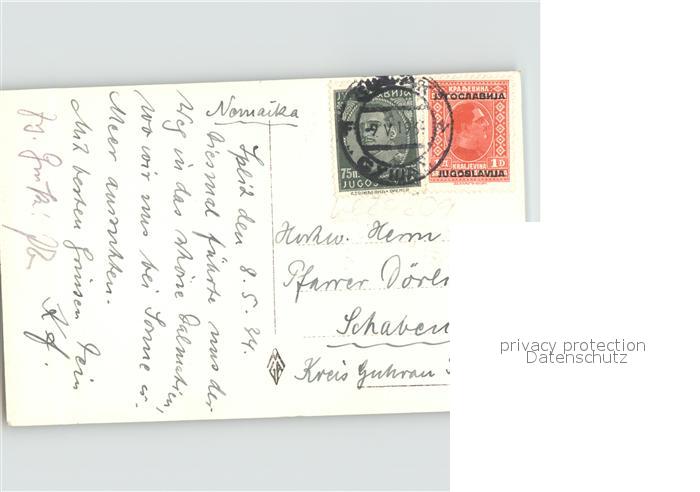 Nomaika
Split den 8.5.34.
Diesmal führte uns der
Weg in das schöne Dalmatien,
wo wir uns bei Sonne er-
Meer ausruhten.
Mit besten Grüssen Dein
Hochw. Herrn
Pfarrer Dörls
Schaben
Kreis Guhrau
75
ЈУГОСЛАВИЈА
JUGOS
КРАЉЕВИНА
ЈУГОСЛАВИЈА
KRALJEVINA
1 D
JUGOSLAVIJA
privacy protection
Datenschutz